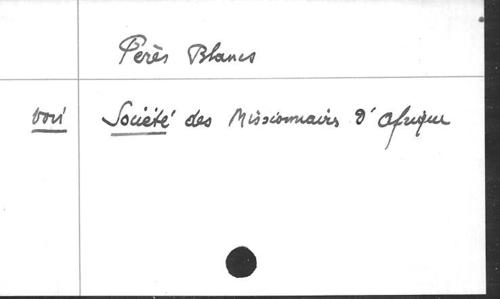 Pères Blancs
voir Société des Missionnaires d'Afrique